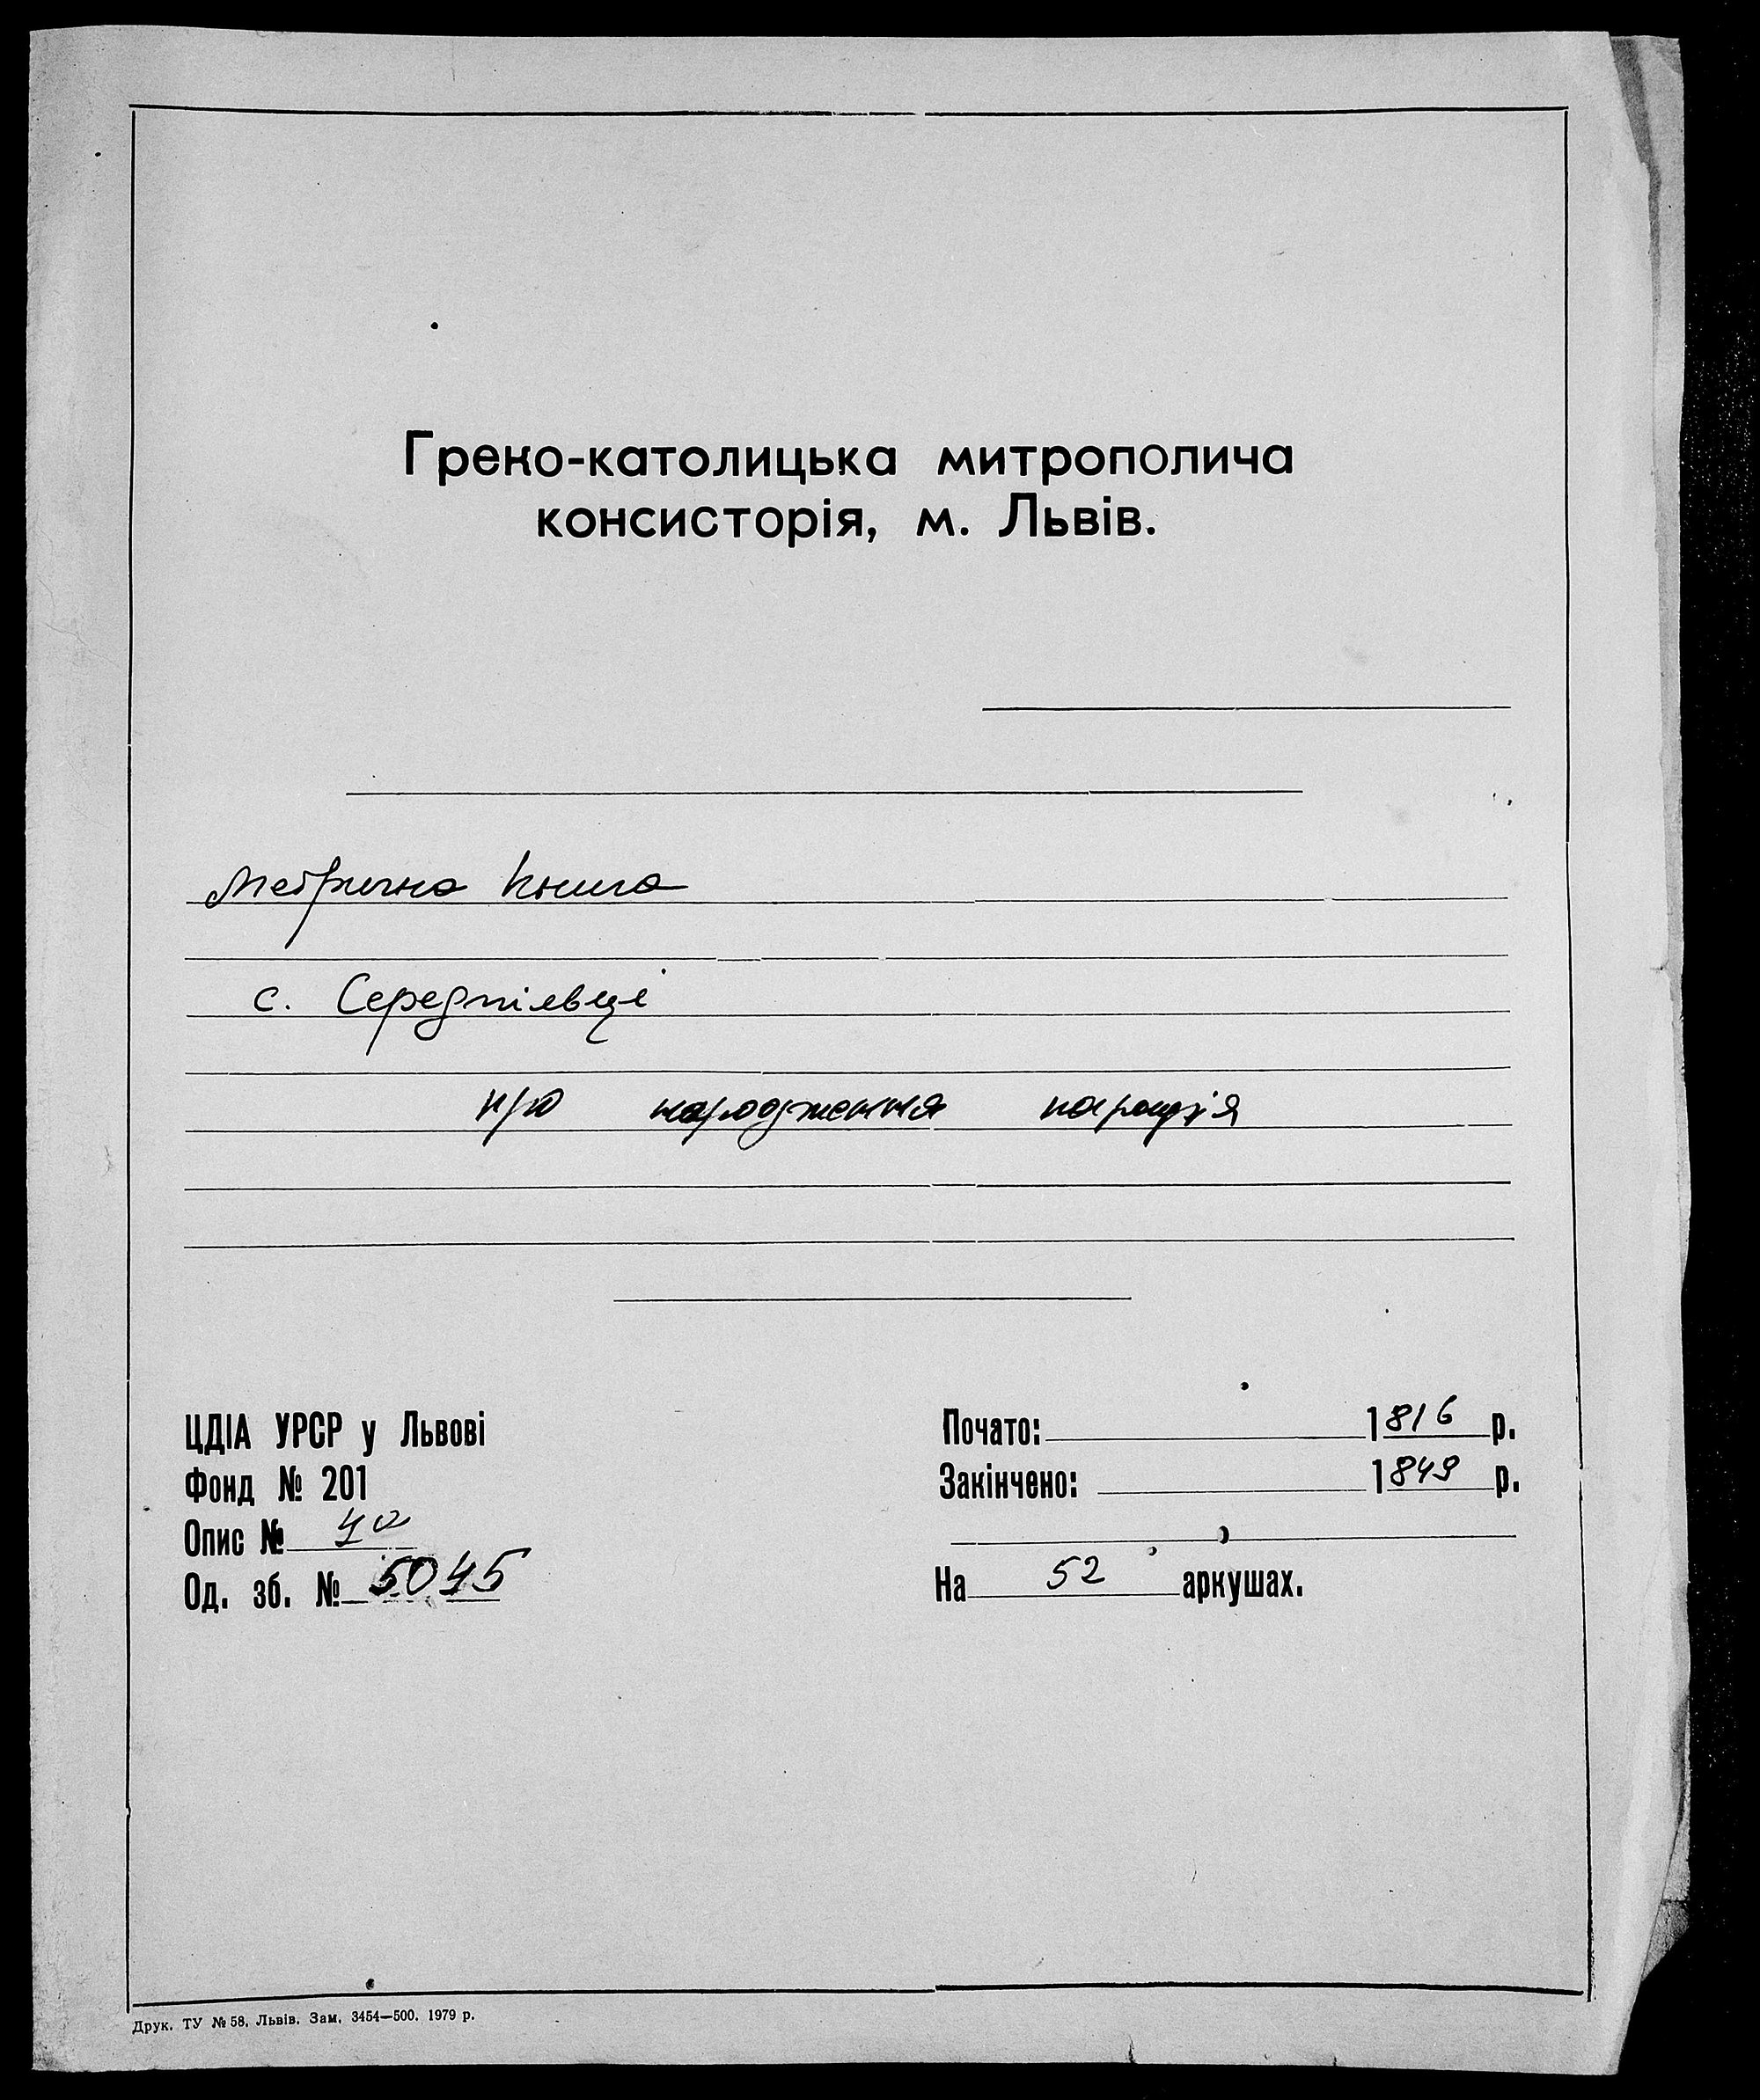 Греко-католицька митрополича
консисторія, м. Львів.
Метрична книга
с. Середпільці
про народження парафія
ЦДІА УРСР у Львові
Фонд № 201
Опис № 4а
Од. зб. № 5045
Почато: 1816 р.
Закінчено: 1849 р.
На 52 аркушах.
Друк. ТУ № 58. Львів. Зам. 3454—500. 1979 р.